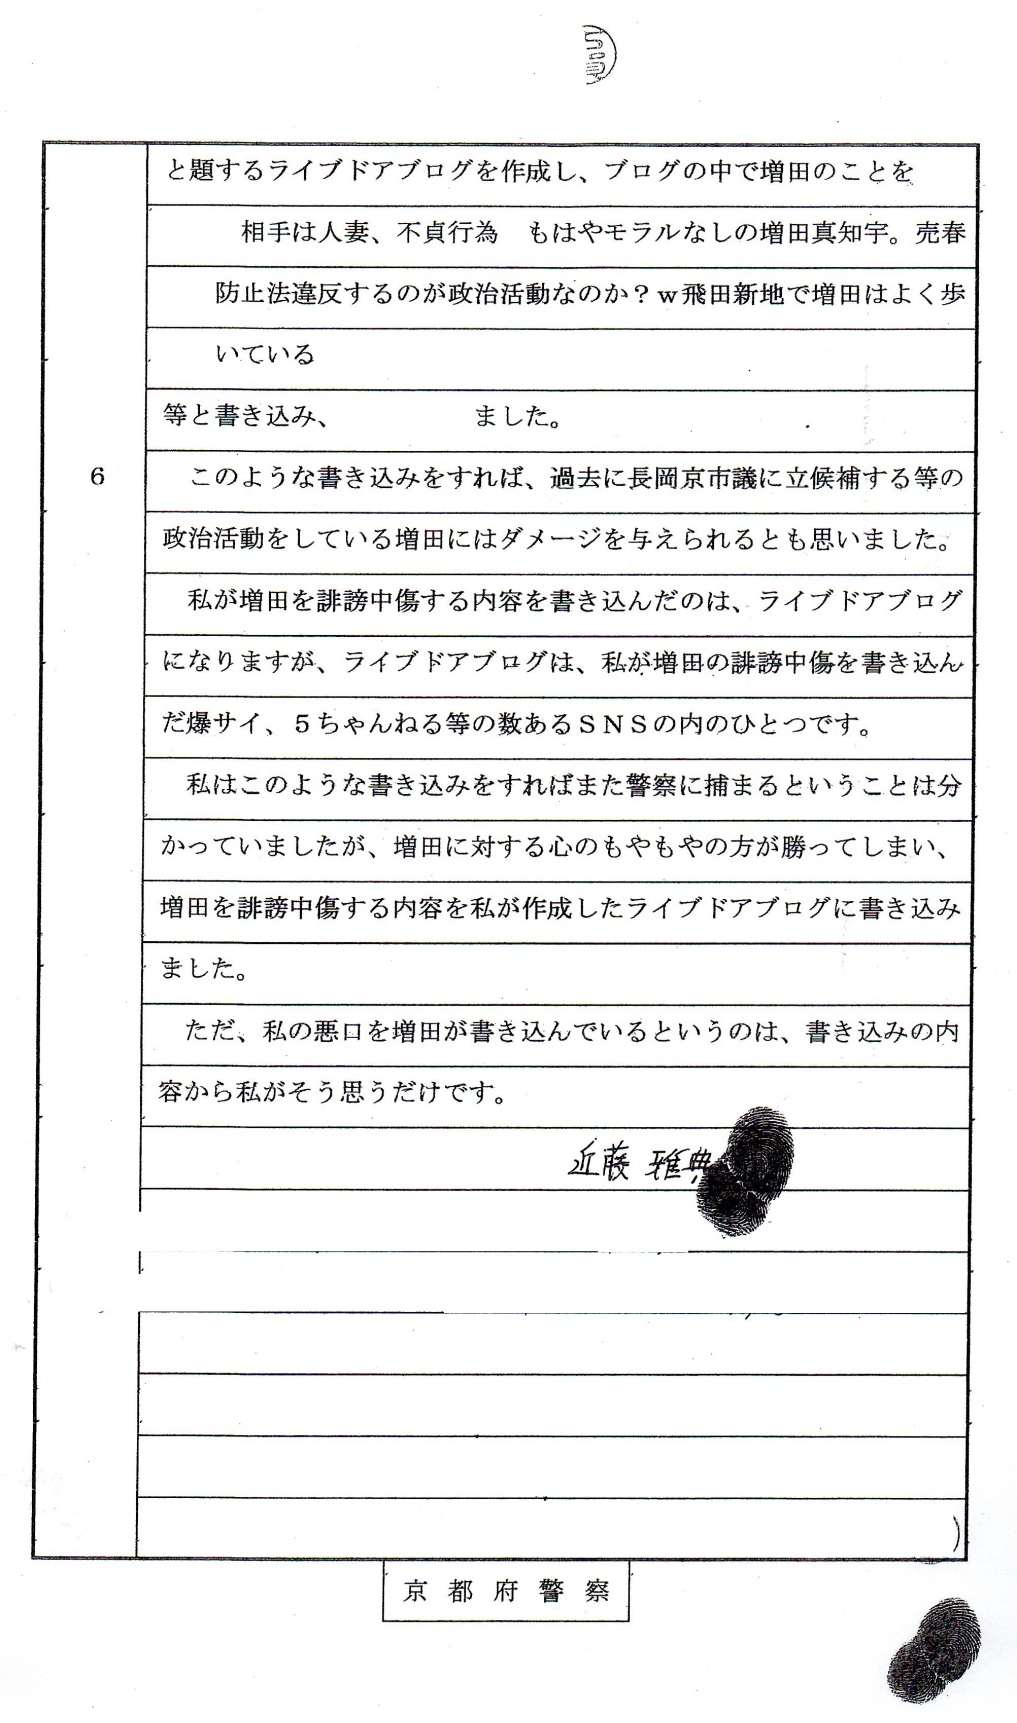 と題するライブドアブログを作成し、ブログの中で増田のことを
相手は人妻、不貞行為　もはやモラルなしの増田真知宇。売春
防止法違反するのが政治活動なのか？ｗ飛田新地で増田はよく歩
いている
等と書き込み、　　　　　ました。
6　このような書き込みをすれば、過去に長岡京市議に立候補する等の
政治活動をしている増田にはダメージを与えられるとも思いました。
私が増田を誹謗中傷する内容を書き込んだのは、ライブドアブログ
になりますが、ライブドアブログは、私が増田の誹謗中傷を書き込ん
だ爆サイ、５ちゃんねる等の数あるＳＮＳの内のひとつです。
私はこのような書き込みをすればまた警察に捕まるということは分
かっていましたが、増田に対する心のもやもやの方が勝ってしまい、
増田を誹謗中傷する内容を私が作成したライブドアブログに書き込み
ました。
ただ、私の悪口を増田が書き込んでいるというのは、書き込みの内
容から私がそう思うだけです。
近藤 雅典
京都府警察